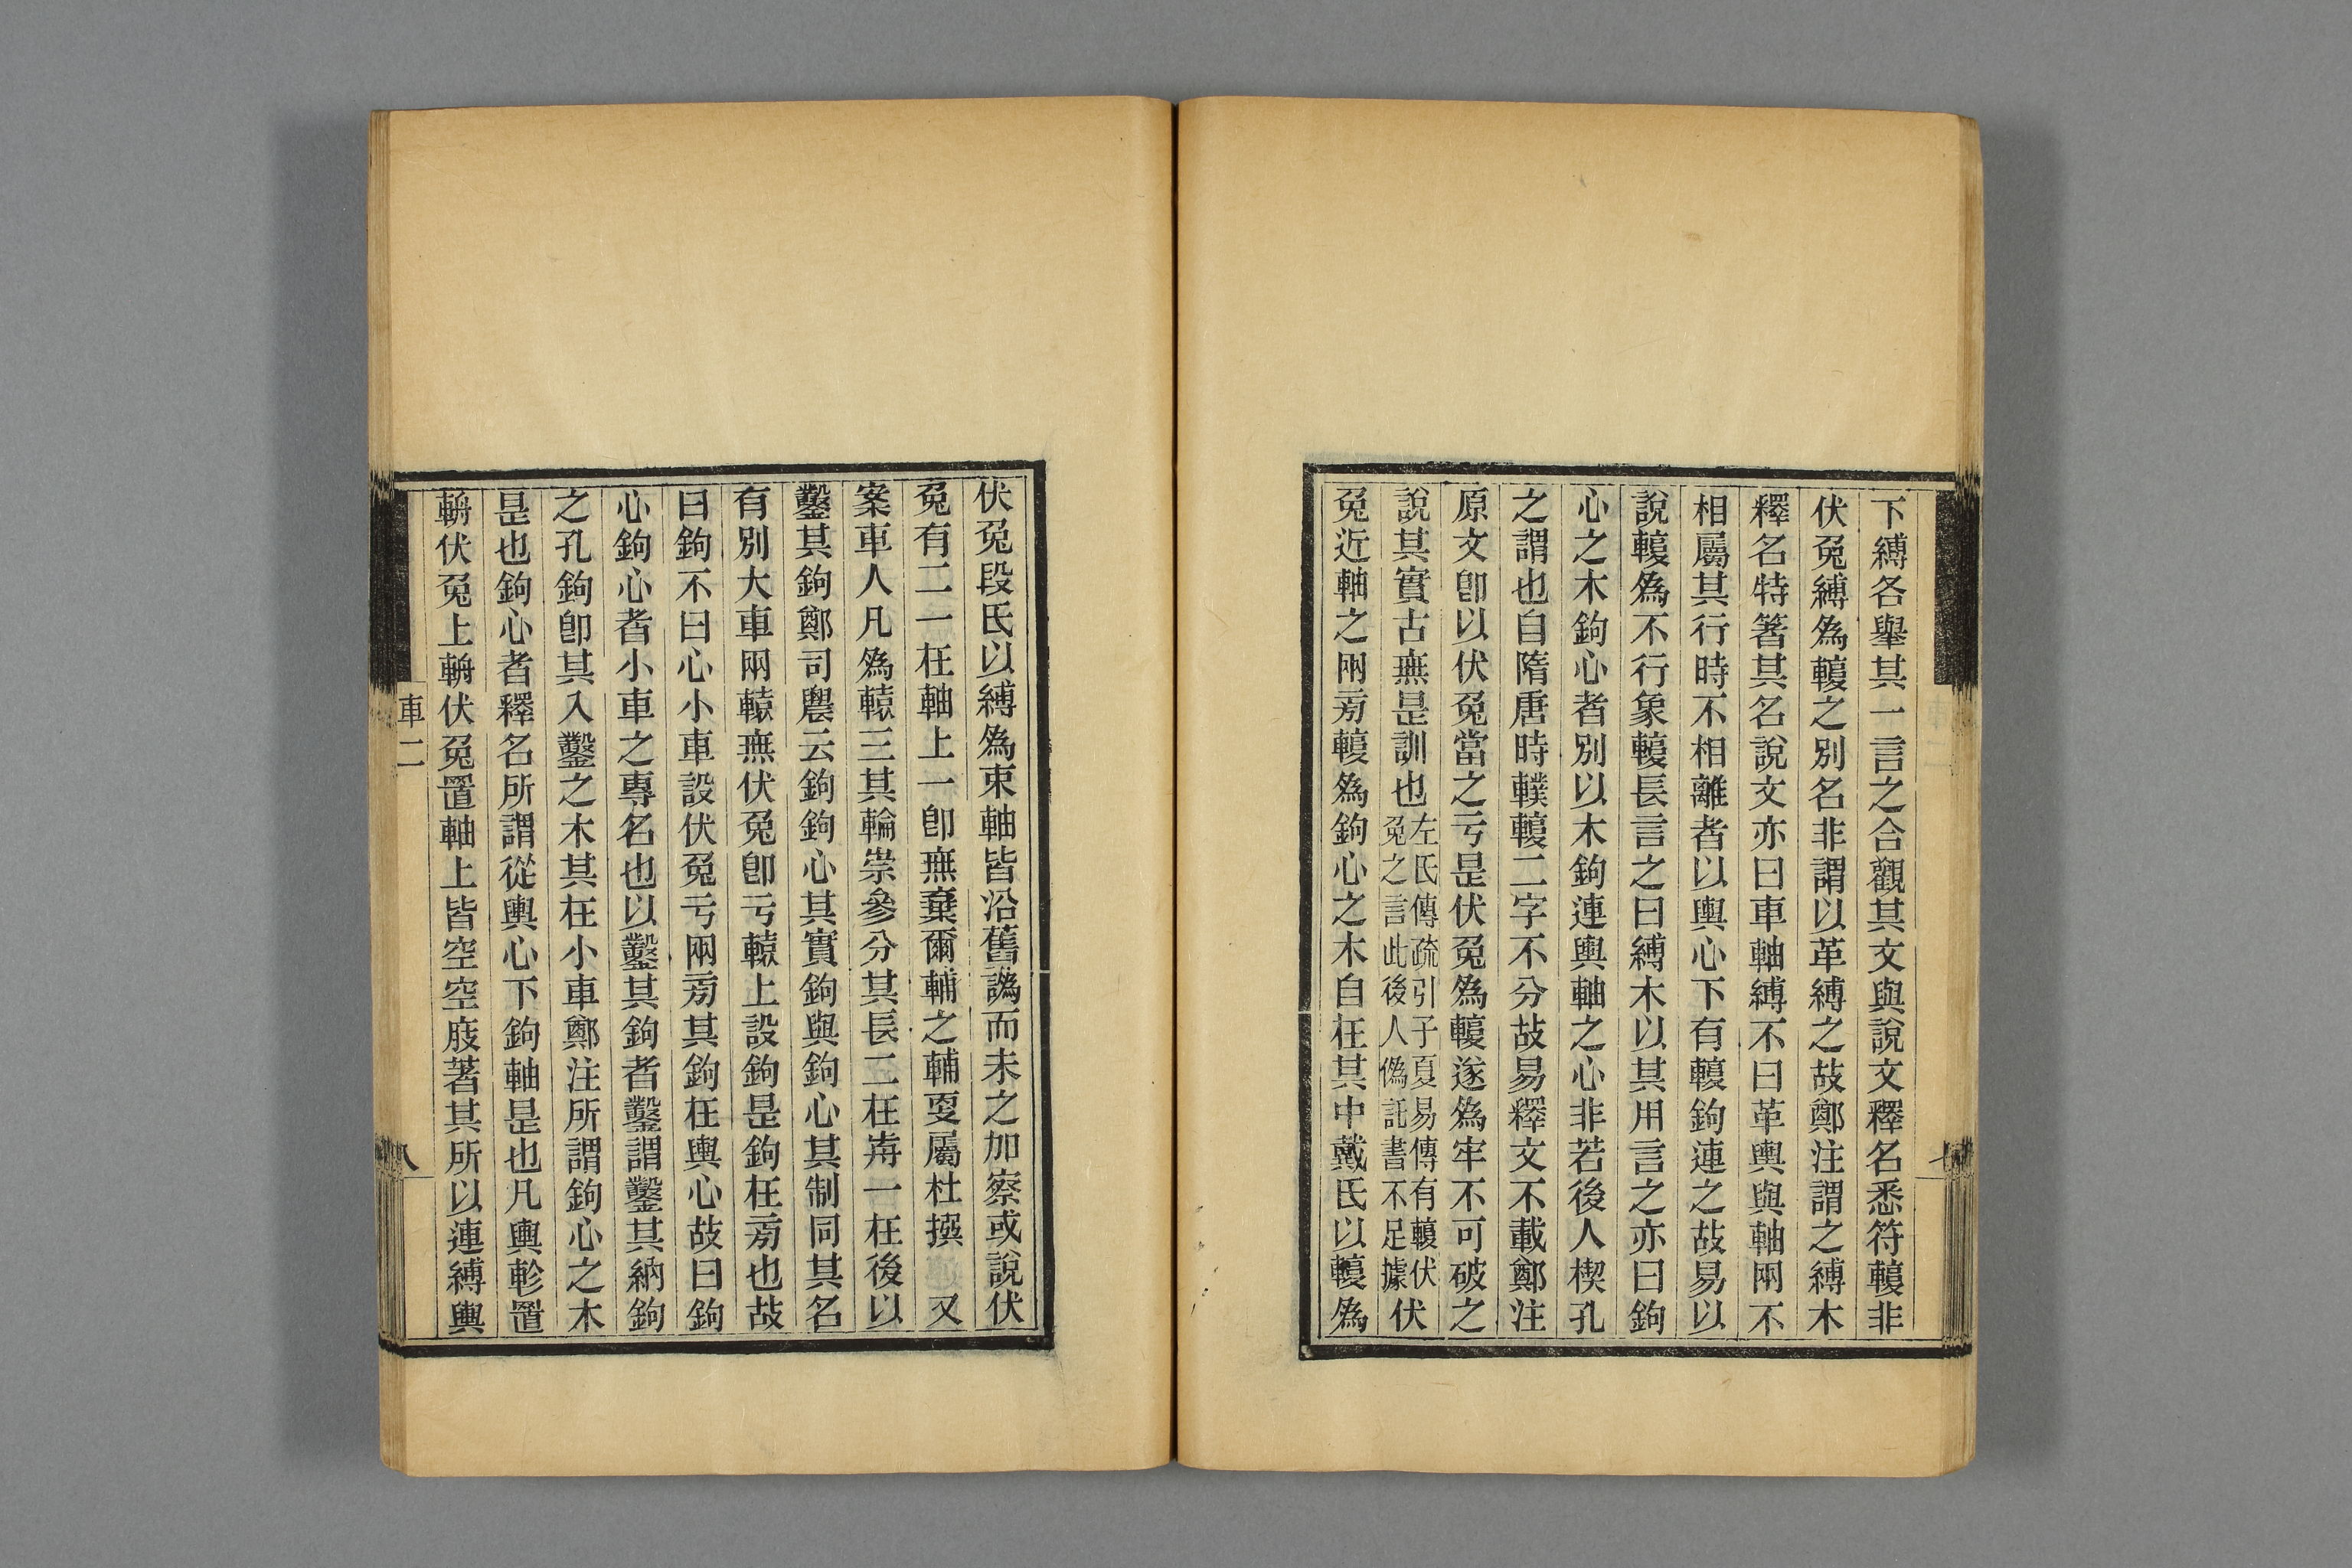 下縛各舉其一言之合觀其文與說文釋名悉符輹非
伏兔縛為輹之別名非謂以革縛之故鄭注謂之縛木
釋名特箸其名說文亦曰車軸縛不曰革輿與軸兩不
相屬其行時不相離者以輿心下有輹鉤連之故易以
說輹為不行象輹長言之曰縛木以其用言之亦曰鉤
心之木鉤心者別以木鉤連輿軸之心非若後人楔孔
之謂也自隋唐時轐輹二字不分故易釋文不載鄭注
原文卽以伏兔當之亏是伏兔為輹遂為牢不可破之
說其實古無是訓也左氏傳疏引子夏易傳有輹伏兔之言此後人偽託書不足據伏
兔近軸之兩㫄輹為鉤心之木自在其中戴氏以輹為
七
伏兔段氏以縛為束軸皆沿舊譌而未之加察或說伏
兔有二一在軸上一卽無棄爾輔之輔叓屬杜撰　又
案車人凡為轅三其輪崇參分其長二在歬一在後以
鑿其鉤鄭司農云鉤鉤心其實鉤與鉤心其制同其名
有別大車兩轅無伏兔卽亏轅上設鉤是鉤在㫄也故
曰鉤不曰心小車設伏兔亏兩㫄其鉤在輿心故曰鉤
心鉤心者小車之專名也以鑿其鉤者鑿謂鑿其納鉤
之孔鉤卽其入鑿之木其在小車鄭注所謂鉤心之木
是也鉤心者釋名所謂從輿心下鉤軸是也凡輿軫置
輈伏兔上輈伏兔置軸上皆空空庪著其所以連縛輿
車二
八